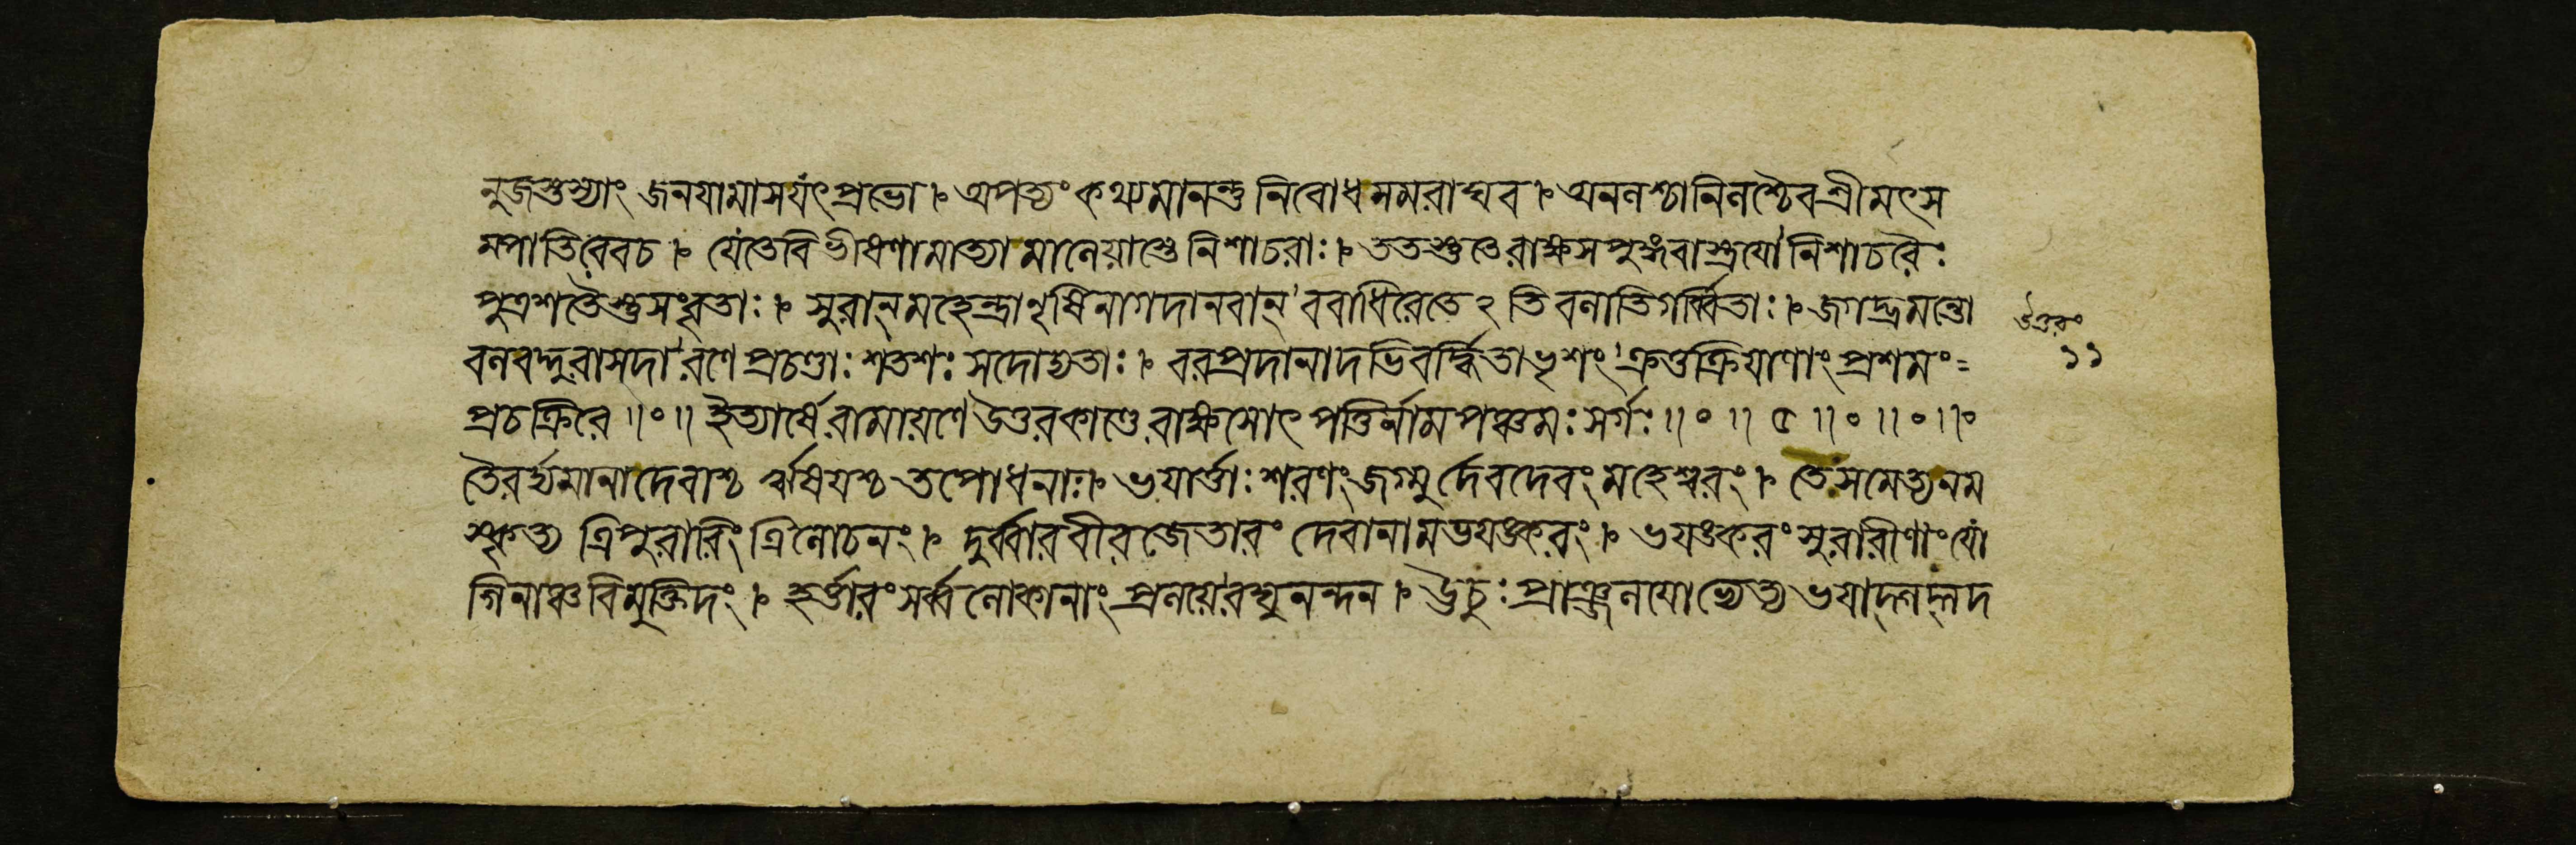 নুজস্তস্যাং জনযামাসযৎপ্রভো। অপত্যং কথ্যমানন্তু নিবোধ মমরাঘব। অনলশ্চানিলশ্চৈব শ্রীমৎস
মপাতিরেবচ। যেতেবিভীষণামাত্যা মালেয়াস্তে নিশাচরাঃ। ততস্তুতেরাক্ষসপুঙ্গবাস্ত্রযো নিশাচরৈঃ
পুত্রশতৈস্তুসংবৃতাঃ। সুরান্মহেন্দ্রানৃষিনাগদানবান্ ববাধিরেতেঽতিবলাতিগর্ব্বিতাঃ। জগদ্ভ্রমন্তো
বলবদ্দুরাসদা রণে প্রচণ্ডাঃ শতশঃ সদোদ্যতাঃ। বরপ্রদানাদভিবর্দ্ধিতাভৃশং ক্রতুক্রিযাণাং প্রশমং=
প্রচক্রিরে॥০॥ ইত্যার্ষে রামায়ণে উত্তরকাণ্ডে রাক্ষসোৎপত্তির্নাম পঞ্চমঃ সর্গঃ॥০॥ ৫ ॥০॥০॥০
তৈরর্দ্যমানাদেবাশ্চ ঋষিযশ্চ তপোধনাঃ। ভযার্ত্তাঃ শরণংজগ্মুর্দেবদেবং মহেশ্বরং। তেসমেত্যনম
স্কৃত্য ত্রিপুরারিং ত্রিলোচনং। দুর্ব্বারবীরজেতারং দেবানামভযঙ্করং। ভযঙ্করং সুরারীণাং যো
গিনাঞ্চ বিমুক্তিদং। হর্ত্তারং সর্ব্বলোকানাং প্রলয়েরঘুনন্দন। ঊচুঃ প্রাঞ্জলযোভ্যেত্য ভযাদ্গদ্গদ
উত্তরং
১১